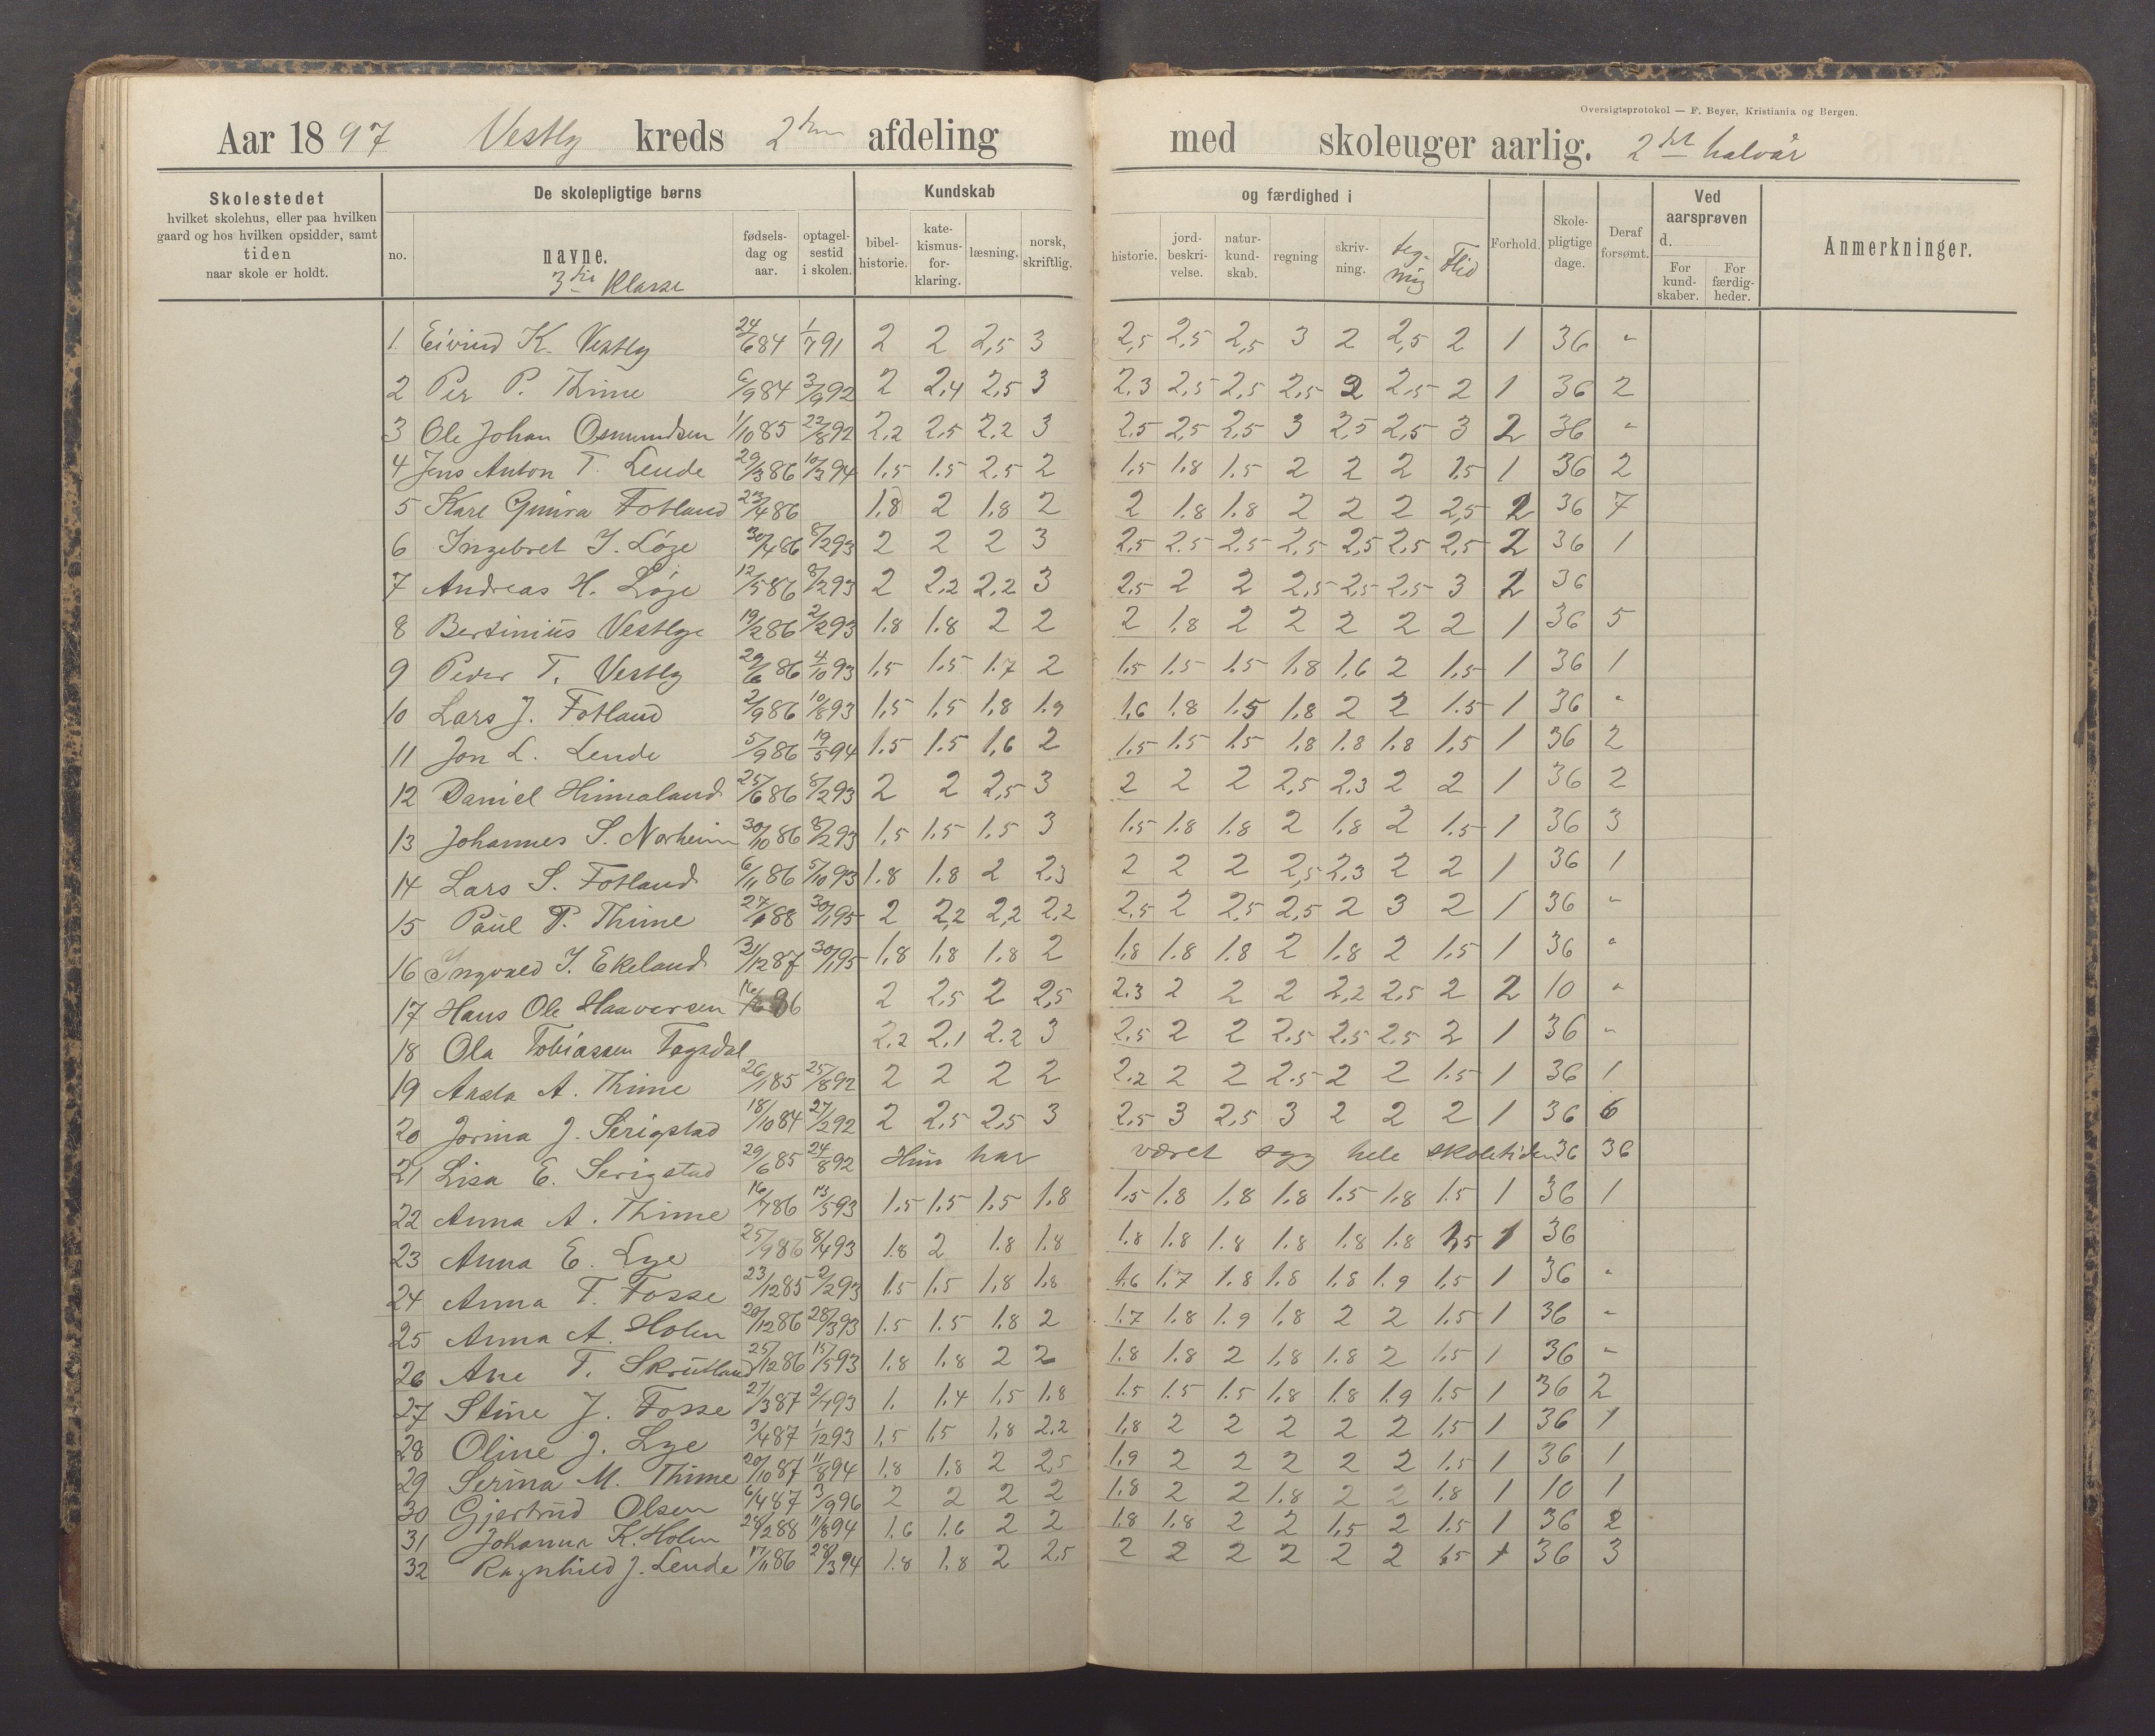 Oversigtsprotokol — F. Beyer, Kristiania og Bergen.
Aar 1897 Vestly kreds 2den afdeling med skoleuger aarlig. 2det halvår
Skolestedet hvilket skolehus, eller paa hvilken gaard og hos hvilken opsidder, samt tiden naar skole er holdt.
De skolepligtige børns
no. navne. fødselsdag og aar. optagelsestid i skolen.
3die Klasse
Kundskab og færdighed i
bibelhistorie. katekismusforklaring. læsning. norsk, skriftlig. historie. jordbeskrivelse. naturkundskab. regning skrivning. tegning Flid
Forhold. Skolepligtige dage. Deraf forsømt. Ved aarsprøven d. For kundskaber. For færdigheder. Anmerkninger.
1 Eivind K. Vestly 24/6 84 1/7 91 2 2 2,5 3 2,5 2,5 2,5 3 2 2,5 2 1 36 "
2 Per P. Thime 6/9 84 3/9 92 2 2,4 2,5 3 2.3 2,5 2,5 2,5 2 2,5 2 1 36 2
3 Ole Johan Osmundsen 1/10 85 22/8 92 2,2 2,5 2,2 3 2.5 2,5 2,5 3 2,5 2,5 3 2 36 "
4 Jens Anton T. Lende 29/3 86 10/3 94 1.5 1.5 2.5 2 1,5 1.8 1.5 2 2 2 1.5 1 36 2
5 Karl Fotland 23/4 86 1.8 2 1.8 2 2 1.8 1.8 2 2 2 2,5 2 36 7
6 Ingebret J. Løge 30/4 86 8/2 93 2 2 2 3 2,5 2.5 2,5 2,5 2,5 2,5 2,5 2 36 1
7 Andreas H. Løge 12/5 86 8/2 93 2 2,2 2,2 3 2,5 2 2 2,5 2,5 2,5 3 2 36
8 Bertinius Vestlye 19/2 86 2/2 93 1.8 1.8 2 2 2 1.8 2 2 2 2 2 1 36 5
9 Peder T. Vestly 29/6 86 4/10 93 1,5 1.5 1.7 2 1.5 1.5 1.5 1.8 1,6 2 1.5 1 36 1
10 Lars J. Fotland 2/9 86 10/8 93 1,5 1,5 1,8 1.9 1,6 1.8 1.5 1.8 2 2 1.5 1 36 "
11 Jon L. Lende 5/9 86 19/3 94 1.5 1.5 1,6 2 1.5 1.5 1.5 1.8 1.8 1.8 1,5 1 36 2
12 Daniel Himaland 25/6 86 8/2 93 2 2 2,5 3 2 2 2 2,5 2.3 2 2 1 36 2
13 Johannes S. Norheim 30/10 86 8/2 93 1,5 1.5 1.5 3 1.5 1.8 1.8 2 1.8 2 1.5 1 36 3
14 Lars S. Fotland 6/11 86 5/10 93 1.8 1.8 2 2.3 2 2 2 2,5 2,3 2 2 1 36 1
15 Paul P. Thime 27/1 88 30/1 95 2 2,2 2,2 2,2 2.5 2 2,5 2,5 2 3 2 1 36 "
16 Ingvald J. Ekeland 31/12 87 30/1 95 1,8 1,8 1.8 2 1.8 1.8 1.8 2 1.8 2 1.5 1 36 "
17 Hans Ole Haaversen 16/6 86 2 2,5 2 2,5 2.3 2 2 2 2,2 2.5 2 2 10 "
18 Ola Tobiassen Fagsdal 2.2 2,1 2.2 3 2.5 2 2 2.5 2.5 2.5 2 1 36 "
19 A. Thime 26/1 85 25/8 92 2 2 2 2 2.2 2 2 2.5 2 2 1.5 1 36 1
20 Jorina J. Serigstad 18/10 84 27/2 92 2 2,5 2,5 3 2,5 3 2,5 3 2 2 2 1 36 6
21 Lisa E. Serigstad 29/6 85 24/8 92 Hun har været syg hele skoletiden 36 36
22 Anna A. Thime 16/7 86 13/5 93 1.5 1.5 1.5 1.8 1,5 1.8 1.8 1.8 1.5 1.8 1.5 1 36 1
23 Anna E. Lye 25/9 86 8/4 93 1.8 2 1.8 1.8 1.8 1.8 1.8 1.8 1.8 1.8 1,5 1 36
24 Anna T. Fosse 23/12 85 2/2 93 1.5 1.5 1,8 1,8 1.6 1.7 1.8 1.8 1.8 1.9 1.5 1 36 "
25 Anna A. Holen 20/12 86 28/3 93 1.5 1.5 1.8 2 1.7 1.8 1.9 1.8 2 2 1.5 1 36 "
26 Ane T. Skrutland 25/12 86 15/5 93 1.8 1.8 2 2 1.8 1.8 2 1.8 1.8 2 1.5 1 36 "
27 Stine J. Fosse 27/3 87 2/7 93 1. 1.4 1,5 1.8 1.5 1.5 1.5 1.8 1.8 1.9 1.5 1 36 2
28 Oline J. Lye 3/4 87 1/12 93 1,5 1,5 1,8 2.2 1,8 2 2 2 2 2 1,5 1 36 1
29 Serina M. Thime 20/10 87 11/8 94 1.8 1.8 2 2,5 1,9 2 2 2 2 2 1.5 1 36 1
30 Gjertrud Olsen 6/4 87 3/9 96 2 2 2 2 1.8 2 2 1.8 2 2 1.8 1 10 1
31 Johanna K. Holen 28/2 88 11/8 94 1.6 1.6 2 2 1.8 1.8 2 2 1,5 2 1.5 1 36 2
32 Ragnhild J. Lende 17/11 86 28/3 94 1.8 1.8 2 2.5 2 2 2 2 2 2 1.5 1 36 3